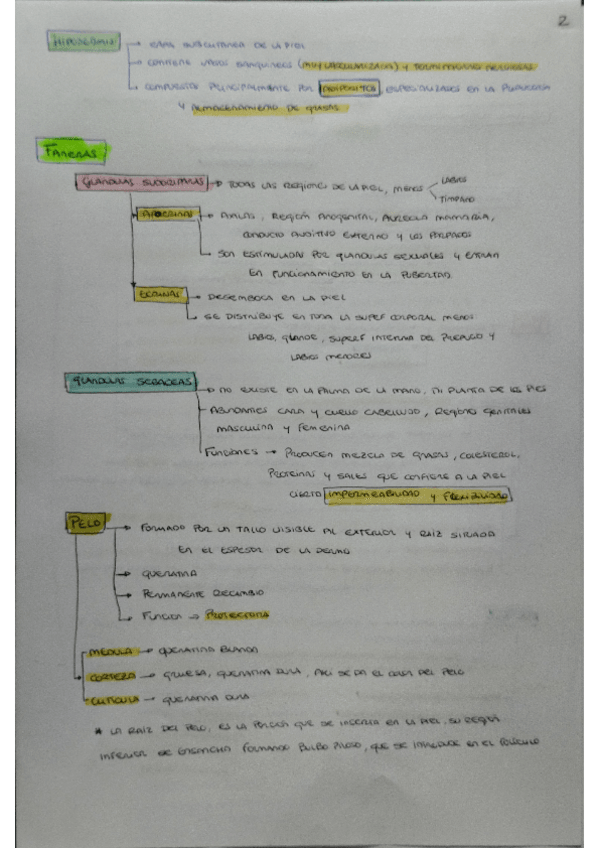 2
HIPODERMIS → CAPA SUBCUTANEA DE LA PIEL
→ CONTIENE VASOS SANGUINEOS (MUY VASCULARIZADA) Y TERMINACIONES NERVIOSAS
→ COMPUESTAS PRINCIPALMENTE POR ADIPOCITOS, ESPECIALIZADOS EN LA PRODUCCION
Y ALMACENAMIENTO DE GRASAS
FANERAS
GLANDULAS SUDORIPARAS → TODAS LAS REGIONES DE LA PIEL, MENOS LABIOS
TIMPANO
APOCRINAS → AXILAS, REGION ANOGENITAL, AUREOLA MAMARIA,
CONDUCTO AUDITIVO EXTERNO Y LOS PARPADOS
→ SON ESTIMULADAS POR GLANDULAS SEXUALES Y ENTRAN
EN FUNCIONAMIENTO EN LA PUBERTAD.
ECRINAS → DESEMBOCA EN LA PIEL
→ SE DISTRIBUYE EN TODA LA SUPERF CORPORAL MENOS
LABIOS, GLANDE, SUPERF INTERNA DEL PREPUCIO Y
LABIOS MENORES
GLANDULAS SEBACEAS → NO EXISTE EN LA PALMA DE LA MANO, NI PLANTA DE LOS PIES
ABUNDANTES CARA Y CUERO CABELLUDO, REGIONES GENITALES
MASCULINA Y FEMENINA
FUNCIONES → PRODUCEN MEZCLA DE GRASAS, COLESTEROL,
PROTEINAS Y SALES QUE CONFIERE A LA PIEL
CIERTA IMPERMEABILIDAD Y FLEXIBILIDAD
PELO → FORMADO POR LA TALLO VISIBLE AL EXTERIOR Y RAIZ SITUADA
EN EL ESPESOR DE LA DERMIS
→ QUERATINA
→ PERMANENTE RECAMBIO
→ FUNCION → PROTECTORA
MEDULA → QUERATINA BLANDA
CORTEZA → GRUESA, QUERATINA DURA, AKI SE DA EL COLOR DEL PELO
CUTICULA → QUERATINA DURA
* LA RAIZ DEL PELO, ES LA PORCION QUE SE INSERTA EN LA PIEL, SU REGION
INFERIOR SE ENSANCHA FORMANDO BULBO PILOSO, QUE SE INVAGINA EN EL FOLICULO